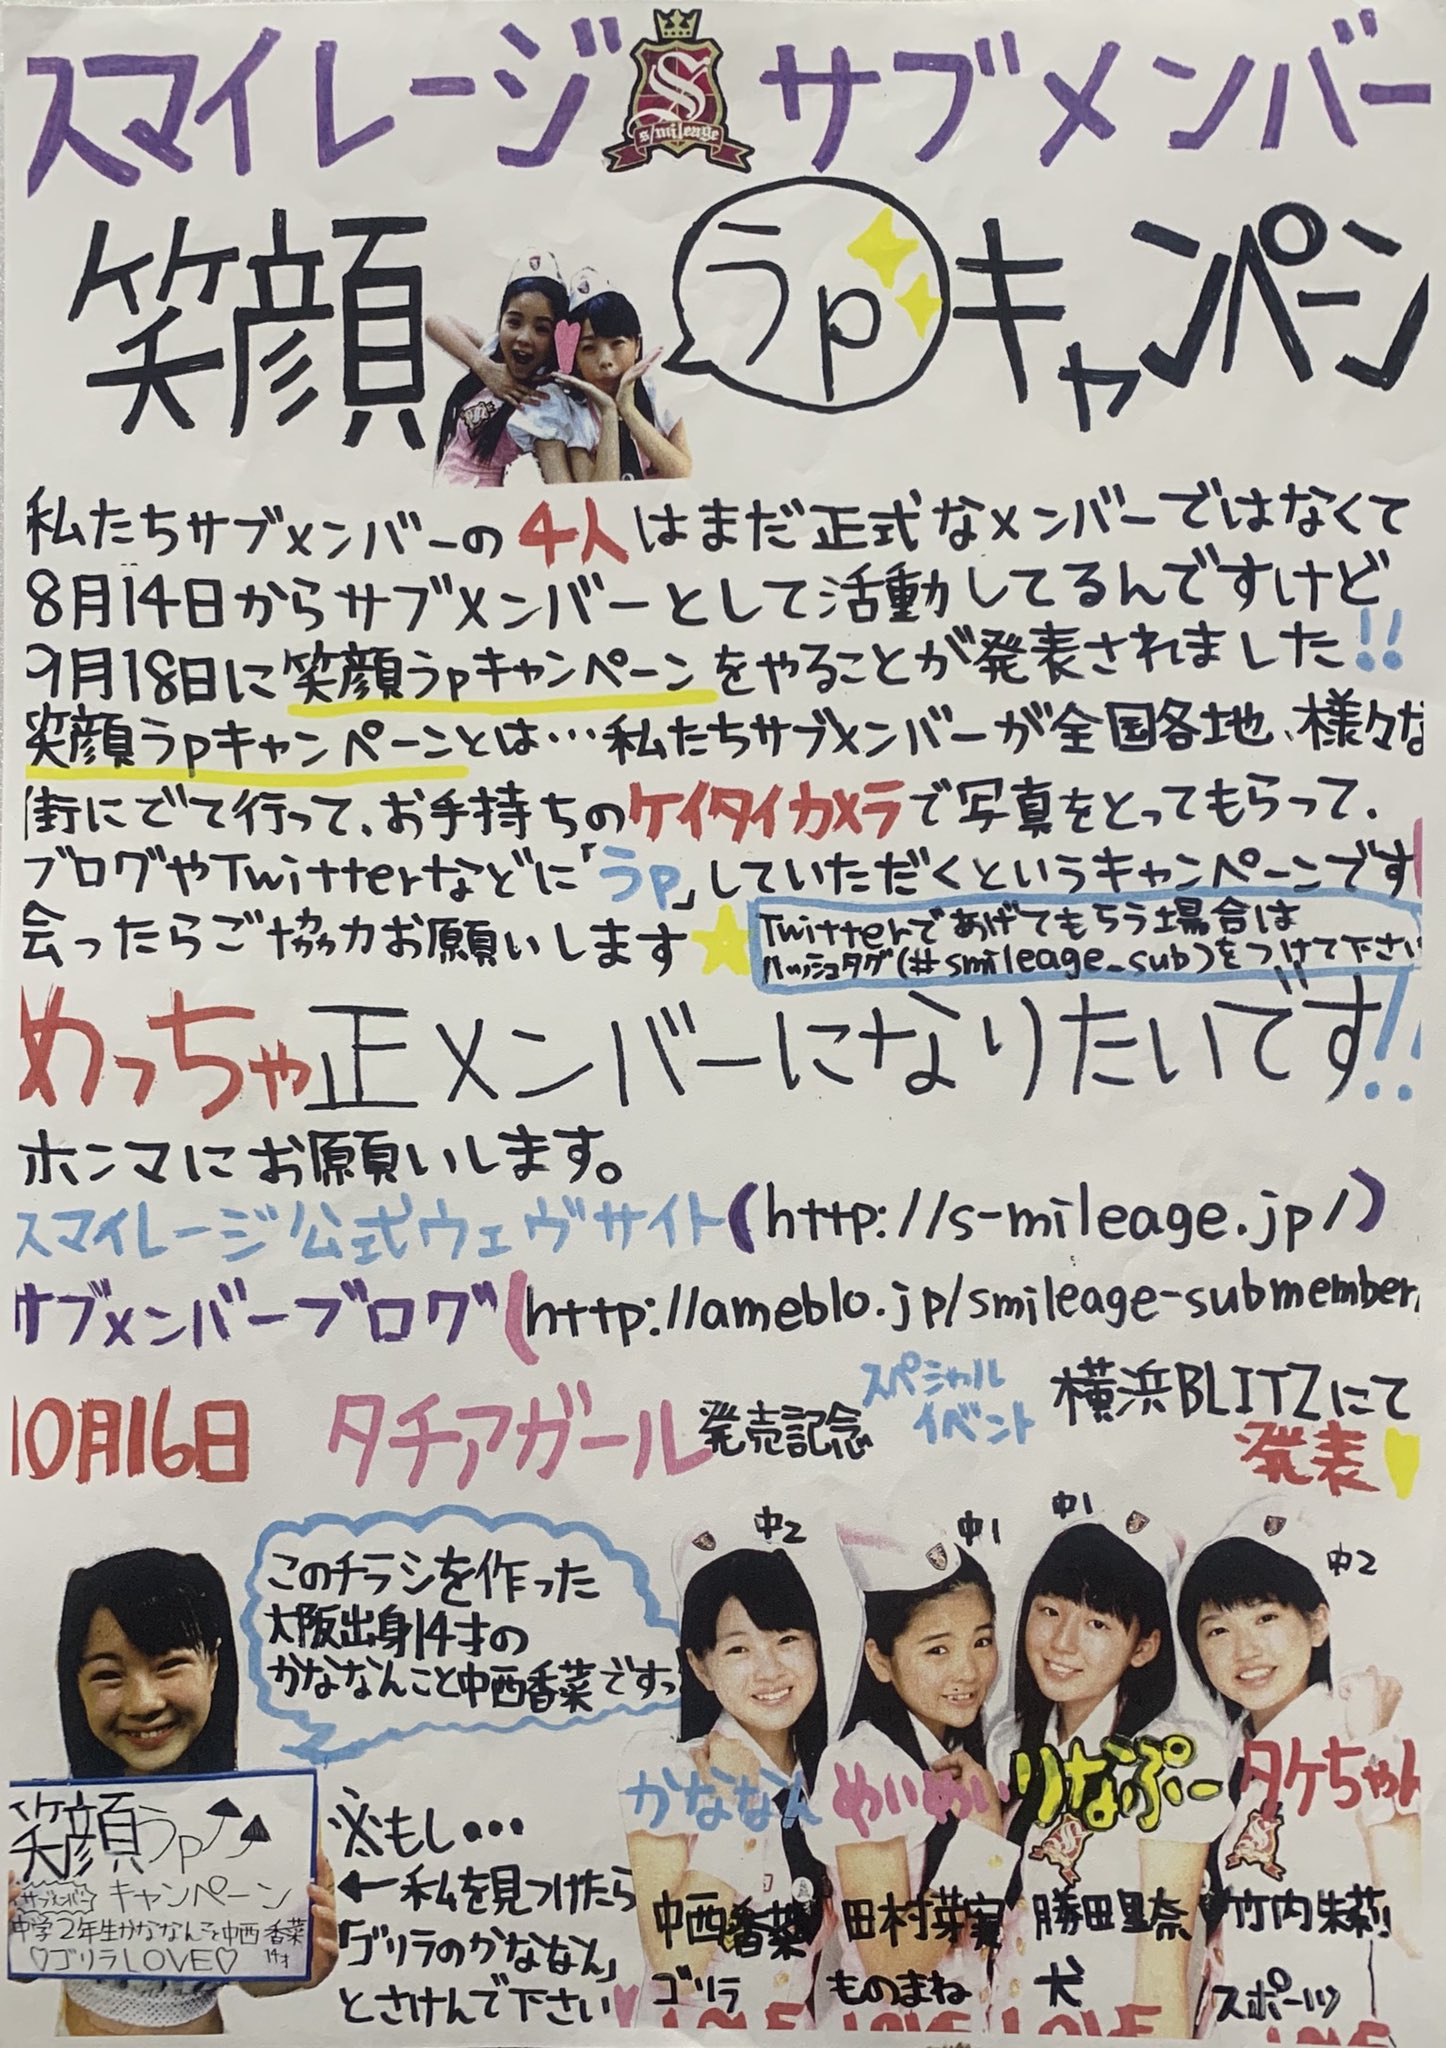 スマイレージ S s/mileage サブメンバー
笑顔 うp キャンペーン
私たちサブメンバーの4人はまだ正式なメンバーではなくて
8月14日からサブメンバーとして活動してるんですけど
9月18日に笑顔うpキャンペーンをやることが発表されました!!
笑顔うpキャンペーンとは…私たちサブメンバーが全国各地、様々な
街にでて行って、お手持ちのケイタイカメラで写真をとってもらって、
ブログやTwitterなどに「うp」していただくというキャンペーンです!
会ったらご協力お願いします
Twitterであげてもらう場合は
ハッシュタグ(#smileage_sub)をつけて下さい
めっちゃ正メンバーになりたいです!!
ホンマにお願いします。
スマイレージ公式ウェヴサイト(http://s-mileage.jp/)
サブメンバーブログ(http://ameblo.jp/smileage-submember/
10月16日 タチアガール 発売記念 スペシャル
イベント 横浜BLITZにて
発表
このチラシを作った
大阪出身14才の
かななんこと中西香菜ですっ
笑顔うp
サブメンバー キャンペーン
中学2年生かななんこと中西香菜
♡ゴリラLOVE♡ 14才
※もし…
←私を見つけたら
「ゴリラのかななん」
とさけんで下さい
中2 中1 中1 中2
かななん めいめい りなぷー タケちゃん
中西香菜 田村芽実 勝田里奈 竹内朱莉
ゴリラ ものまね 犬 スポーツ
LOVE LOVE LOVE LOVE